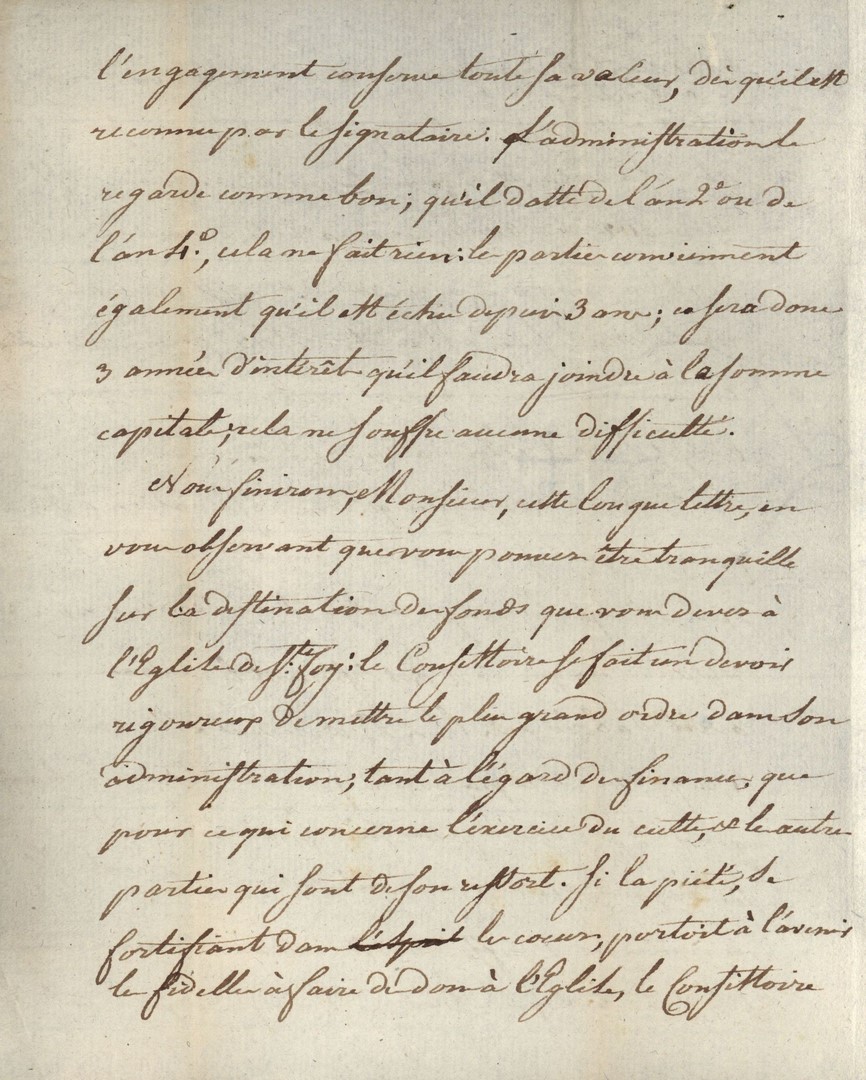 l'engagement conserve toute sa valeur, dès qu'il est
reconnu par le signataire. L'administration le
regarde comme bon; qu'il datte de l'an 2e ou de
l'an 4e, cela ne fait rien: les parties conviennent
également qu'il est échu depuis 3 ans; ce sera donc
3 années d'intérêts qu'il faudra joindre à la somme
capitale; cela ne souffre aucune difficulté.
Nous finirons, Monsieur, cette longue lettre, en
vous observant que vous pouvez être tranquille
sur la destination des fonds que vous devez à
l'Eglise de Ste. Foy: le Consistoire se fait un devoir
rigoureux de mettre le plus grand ordre dans son
administration, tant à l'égard des finances, que
pour ce qui concerne l'éxercice du culte, & les autres
parties qui sont de son ressort. Si la piété, se
fortifiant dans l'esprit les cœurs, portoit à l'avenir
les fidelles à faire des dons à l'Eglise, le Consistoire